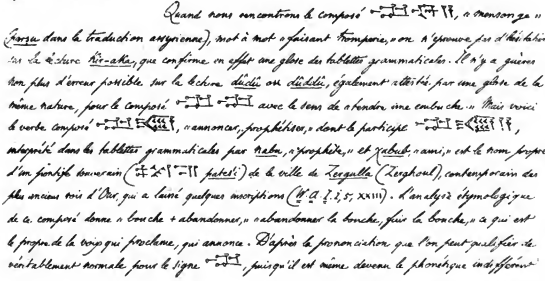 Quand nous rencontrons le composé , « mensonge »
( dans la traduction assyrienne), mot à mot « faisant tromperie, » on n'éprouve pas d'hésitation
sur la lecture Kir-aka, que confirme en effet une glose des tablettes grammaticales. Il n'y a guères
non plus d'erreur possible sur la lecture dùdù ou dùddù, également attestée par une glose de la
même nature, pour le composé avec le sens de « tendre une embuche. » Mais voici
le verbe composé , « annoncer, prophétiser, » dont le participe ,
interprété dans les tablettes grammaticales par nabu, « prophète, » et « ami, » est le nom propre
d'un pontife souverain ( patesi) de la ville de Zergulla (Zerghoul), contemporain des
plus anciens rois d'Our, qui a laissé quelques inscriptions (W. A. I. I, 5, XXIII). L'analyse étymologique
de ce composé donne « bouche + abandonner, » « abandonner la bouche, fuir la bouche, » ce qui est
le propre de la voix qui proclame, qui annonce. D'après la prononciation que l'on peut qualifier de
véritablement normale pour le signe , puisqu'il est même devenu le phonétique indifférent